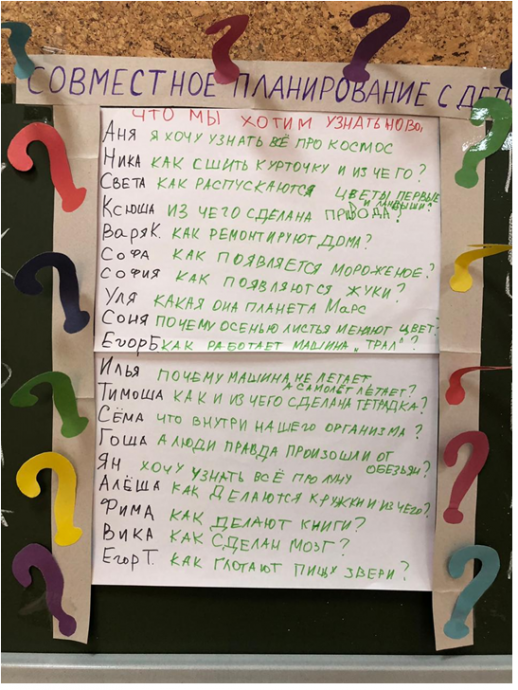 СОВМЕСТНОЕ ПЛАНИРОВАНИЕ С ДЕТЬ
ЧТО МЫ ХОТИМ УЗНАТЬ НОВО,
АНЯ Я ХОЧУ УЗНАТЬ ВСЁ ПРО КОСМОС
НИКА КАК СШИТЬ КУРТОЧКУ И ИЗ ЧЕГО?
СВЕТА КАК РАСПУСКАЮТСЯ ЦВЕТЫ ПЕРВЫЕ
И ЛАНДЫШИ?
КСЮША ИЗ ЧЕГО СДЕЛАНА ПРИРОДА?
ВАРЯ К. КАК РЕМОНТИРУЮТ ДОМА?
СОФА КАК ПОЯВЛЯЕТСЯ МОРОЖЕНОЕ?
СОФИЯ КАК ПОЯВЛЯЮТСЯ ЖУКИ?
УЛЯ КАКАЯ ОНА ПЛАНЕТА МАРС
СОНЯ ПОЧЕМУ ОСЕНЬЮ ЛИСТЬЯ МЕНЯЮТ ЦВЕТ?
ЕГОР Б КАК РАБОТАЕТ МАШИНА „ТРАЛ"?
ИЛЬЯ ПОЧЕМУ МАШИНА НЕ ЛЕТАЕТ
А САМОЛЁТ ЛЕТАЕТ?
ТИМОША КАК И ИЗ ЧЕГО СДЕЛАНА ТЕТРАДКА?
СЁМА ЧТО ВНУТРИ НАШЕГО ОРГАНИЗМА?
ГОША А ЛЮДИ ПРАВДА ПРОИЗОШЛИ ОТ
ОБЕЗЬЯН?
ЯН ХОЧУ УЗНАТЬ ВСЁ ПРО ЛУНУ
АЛЁША КАК ДЕЛАЮТСЯ КРУЖКИ И ИЗ ЧЕГО?
ФИМА КАК ДЕЛАЮТ КНИГИ?
ВИКА КАК СДЕЛАН МОЗГ?
ЕГОР Т. КАК ГЛОТАЮТ ПИЩУ ЗВЕРИ?